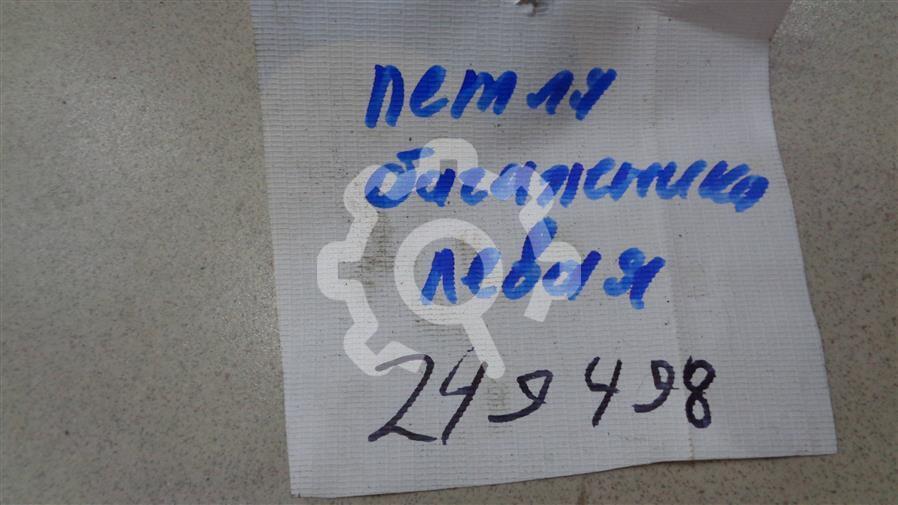 петля
багажника
левая
249498